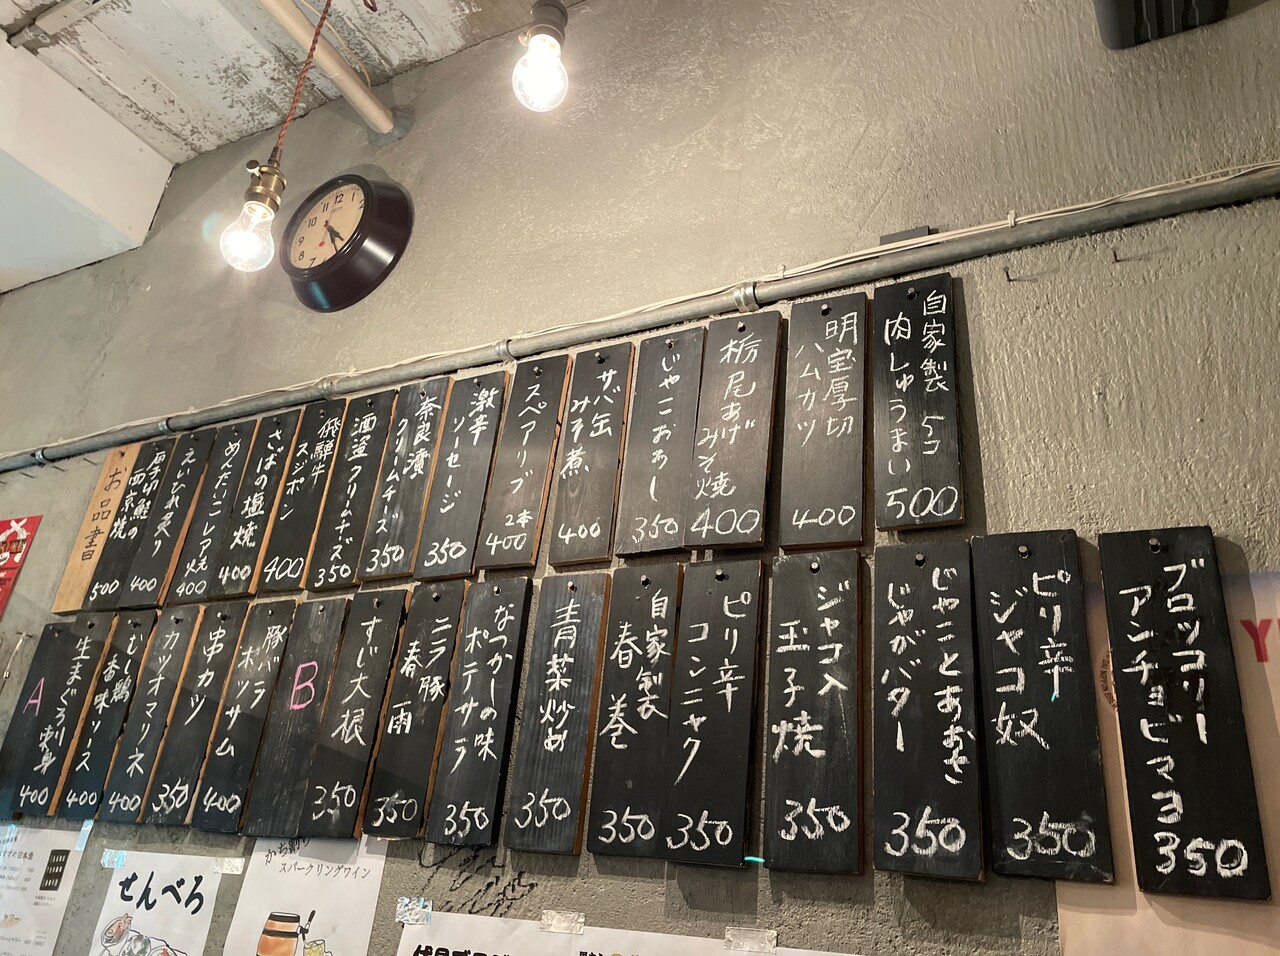 自家製 5コ
肉しゅうまい
500
明宝厚切
ハムカツ
400
栃尾あげ
みそ焼
400
じゃこおろし
350
サバ缶
みそ煮
400
スペアリブ
2本
400
激辛
ソーセージ
350
奈良漬
クリームチーズ
350
酒盗クリームチーズ
350
飛騨牛
スジポン
400
さばの塩焼
400
めんたいこレア焼
400
えいひれ炙り
400
厚切鮭の
西京焼
500
お品書
ブロッコリー
アンチョビマヨ
350
ピリ辛
ジャコ奴
350
じゃことあおさ
じゃがバター
350
ジャコ入
玉子焼
350
ピリ辛
コンニャク
350
自家製
春巻
350
青菜炒め
350
なつかしの味
ポテサラ
350
ニラ豚
春雨
350
すじ大根
350
B
豚バラ
ポッサム
400
串カツ
350
カツオマリネ
400
むし鶏
香味ソース
400
生まぐろ刺身
400
A
せんべろ
かち割り
スパークリングワイン
12
11
10
9
8
7
1